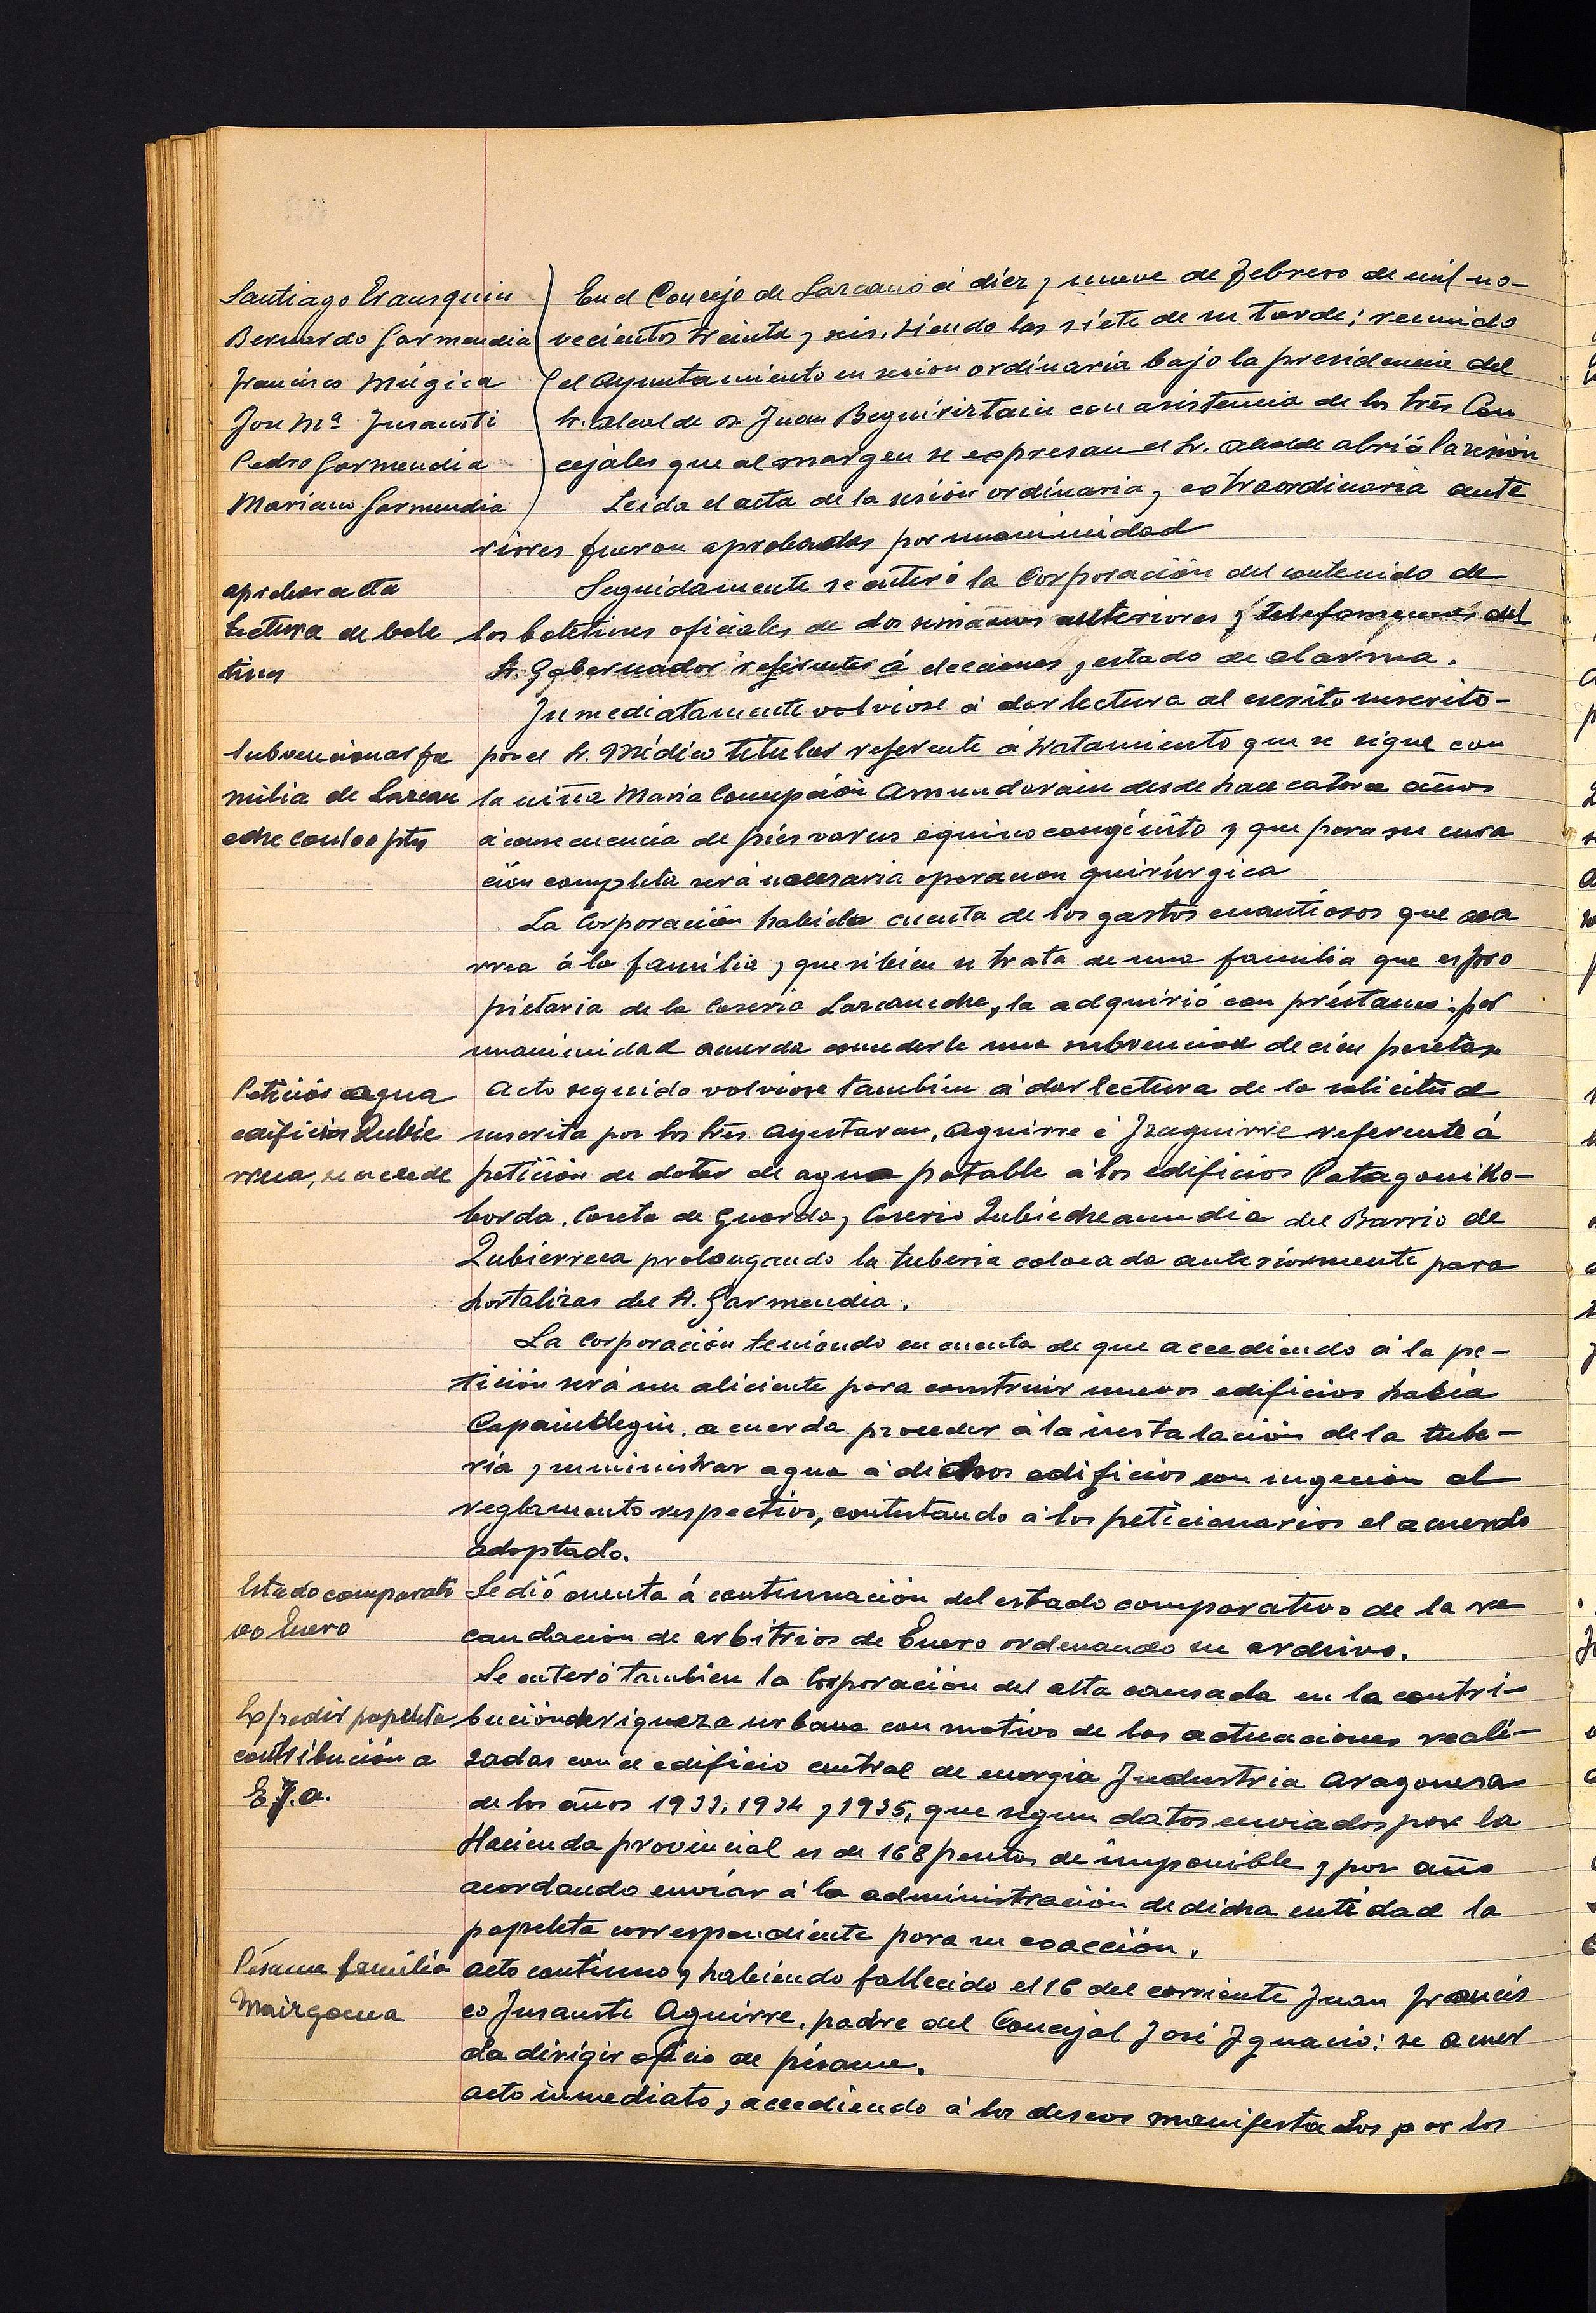 Santiago Erausquin
Bernardo Garmendia
Francisco Múgica
José Mª Insausti
Pedro Garmendia
Mariano Garmendia
En el Concejo de Lazcano á diez y nueve de Febrero de mil no-
vecientos treinta y seis, siendo las siete de su tarde; reunido
el Ayuntamiento en sesion ordinaria bajo la presidencia del
Sr. Alcalde Dn. Juan Beguiristain con asistencia de los Srês Con
cejales que al margen se expresan el Sr. Alcalde abrió la sesión
Leida el acta de la sesión ordinaria y extraordinaria ante
riores fueron aprobadas por unanimidad
aprobar acta
Lectura de bole
tines
Seguidamente se enteró la Corporación del contenido de
los boletines oficiales de dos semanas anteriores y telefonemas del
Sr. Gobernador referentes á elecciones y estado de alarma.
Subvencionar fa
milia de Lazcan
eche con 100 pts
Inmediatamente volviose á dar lectura al escrito suscrito-
por el Sr. Médico titular referente á tratamiento que se sigue con
la niña Maria Concepción Amundarain desde hace catorce años
á consecuencia de piés varus equino congénito y que para su cura
ción completa será necesaria operacion quirúrgica
La Corporación habida cuenta de los gastos cuantiosos que aca
rrea á la familia y que si bien se trata de una familia que es pro
pietaria de la Caseria Lazcaneche, la adquirió con préstamo: por
unanimidad acuerda concederle una subvención de cien pesetas
Petición agua
edificios Zubie
rreca, se accede
Acto seguido volviose tambien á dar lectura de la solicitud
suscrita por los Srês. Ayestaran, Aguirre é Izaguirre referente á
petición de dotar de agua potable á los edificios Patagoniko-
borda, Caseta de Guarda y Caserio Zubiecheaundia del Barrio de
Zubierreca prolongando la tuberia colocada anteriormente para
hortalizas del Sr. Garmendia.
La Corporación teniendo en cuenta de que accediendo á la pe-
tición será un aliciente para construir nuevos edificios hacia
acuerda proceder á la instalación de la tube-
ría y suministrar agua á dichos edificios con sugecion al
reglamento respectivo, contestando á los peticionarios el acuerdo
adoptado.
Estado comparati
vo Enero
Se dió cuenta á continuación del estado comparativo de la re
caudacion de arbitrios de Enero ordenando su archivo.
Expedir papeleta
contribución a
E.I.A.
Se enteró tambien la Corporación del alta causada en la contri-
bución de riqueza urbana con motivo de las actuaciones reali-
zadas con el edificio central de energia Industria Aragonesa
de los años 1933, 1934 y 1935, que segun datos enviados por la
Hacienda provincial es de 168 pesetas de imponible y por año
acordando enviar á la administración de dicha entidad la
papeleta correspondiente para su exacción.
Pésame familia
Mairgoena
Acto continuo y habiendo fallecido el 16 del corriente Juan Francis
co Insausti Aguirre, padre del Concejal José Ignacio: se acuer
da dirigir oficio de pésame.
Acto inmediato y accediendo á los deseos manifestados por los